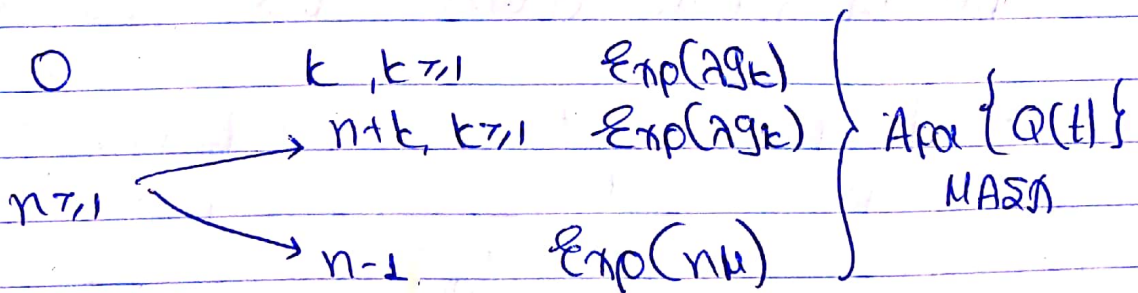 0 k, k≥1 Exp(λgk)
n+k, k≥1 Exp(λgk)
n≥1
n-1 Exp(nμ)
Άρα {Q(t)}
ΜΑΣΧ